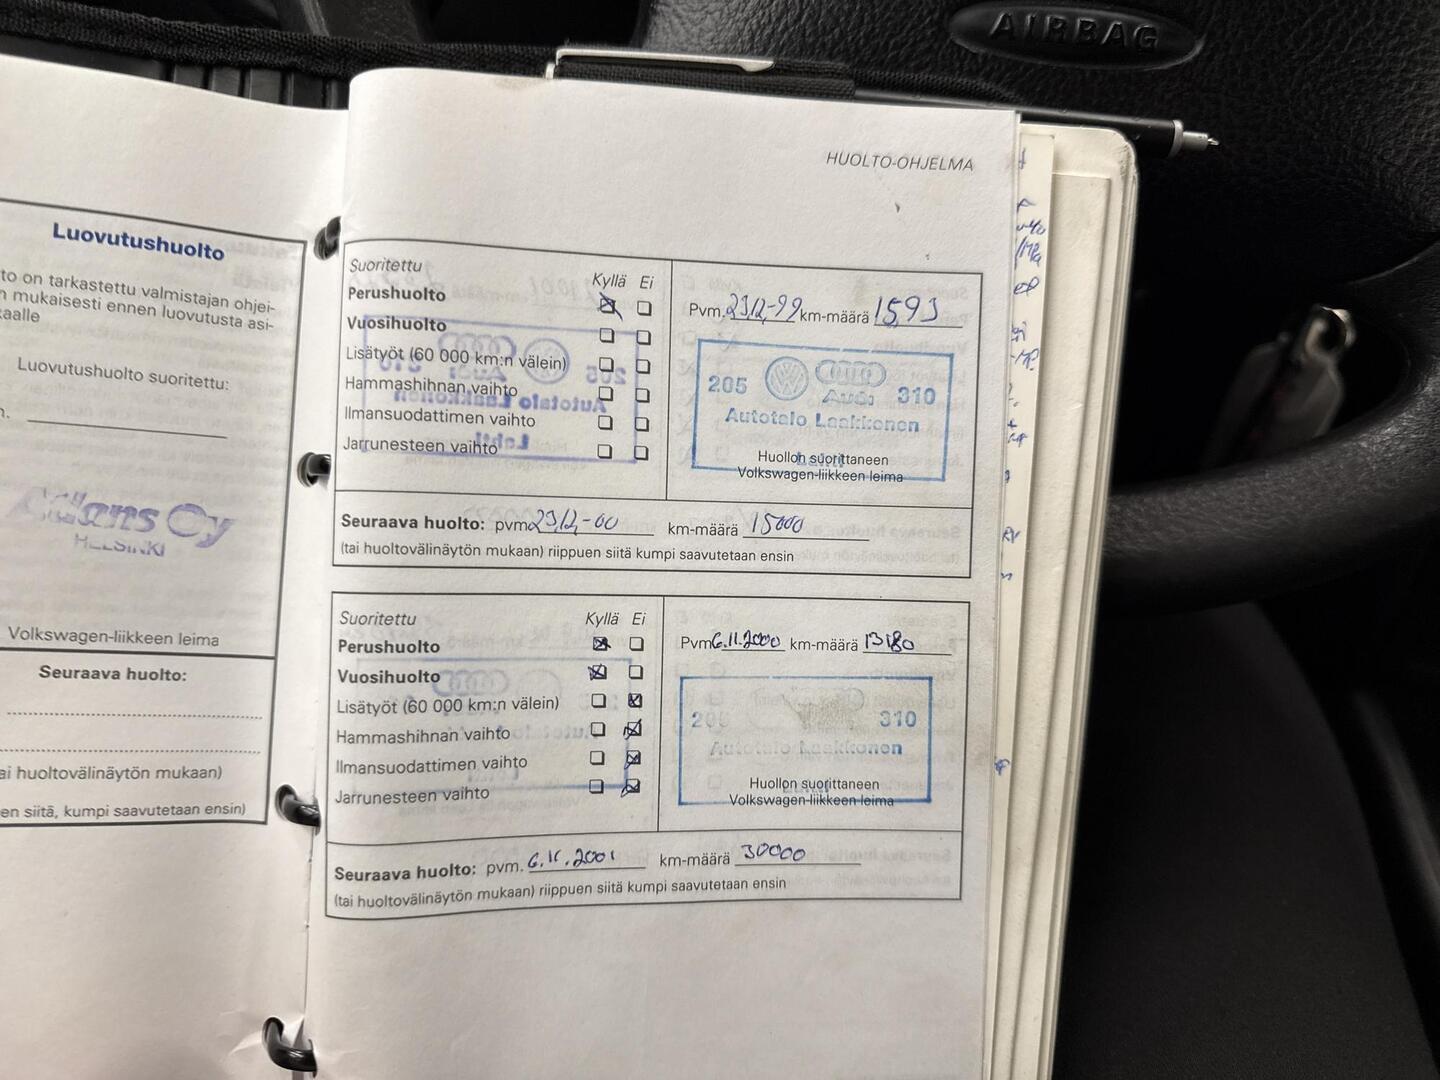 AIRBAG
Luovutushuolto
to on tarkastettu valmistajan ohjei-
n mukaisesti ennen luovutusta asi-
kaalle
Luovutushuolto suoritettu:
Oy
HELSINKI
Volkswagen-liikkeen leima
Seuraava huolto:
ai huoltovälinäytön mukaan)
en siitä, kumpi saavutetaan ensin)
HUOLTO-OHJELMA
Suoritettu Kyllä Ei
Perushuolto
Vuosihuolto
Lisätyöt (60 000 km:n välein)
Hammashihnan vaihto
Ilmansuodattimen vaihto
Jarrunesteen vaihto
Pvm. 23.12.-99 km-määrä 1593
205 Audi 310
Autotalo Laakkonen
Lahti
Huollon suorittaneen
Volkswagen-liikkeen leima
Seuraava huolto: pvm 23.12.-00 km-määrä 15000
(tai huoltovälinäytön mukaan) riippuen siitä kumpi saavutetaan ensin
Suoritettu Kyllä Ei
Perushuolto
Vuosihuolto
Lisätyöt (60 000 km:n välein)
Hammashihnan vaihto
Ilmansuodattimen vaihto
Jarrunesteen vaihto
Pvm 6.11.2000 km-määrä 13180
205 310
Autotalo Laakkonen
Huollon suorittaneen
Volkswagen-liikkeen leima
Seuraava huolto: pvm. 6.11.2001 km-määrä 30000
(tai huoltovälinäytön mukaan) riippuen siitä kumpi saavutetaan ensin